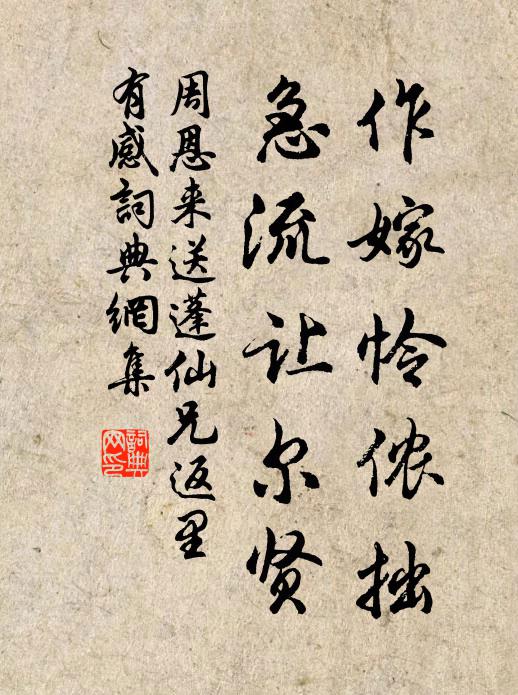 作嫁怜侬拙
急流让尔贤
周恩来送蓬仙兄返里
有感詞典網集
詞典
网印